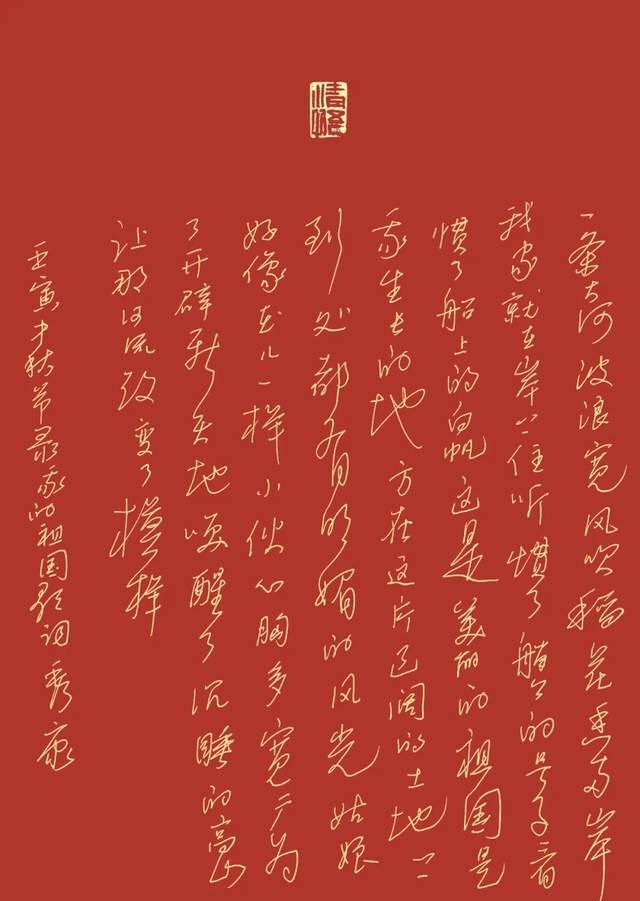 一条大河波浪宽风吹稻花香两岸
我家就在岸上住听惯了艄公的号子看
惯了船上的白帆这是美丽的祖国是
我生长的地方在这片辽阔的土地上
到处都有明媚的风光姑娘
好像花儿一样小伙心胸多宽广为
了开辟新天地唤醒了沉睡的高山
让那河流改变了模样
壬寅中秋节录我的祖国歌词秀康